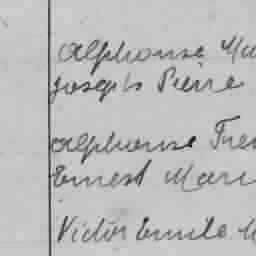 Alphonse
Joseph Pierre
Alphonse
Ernest
Victor Emile